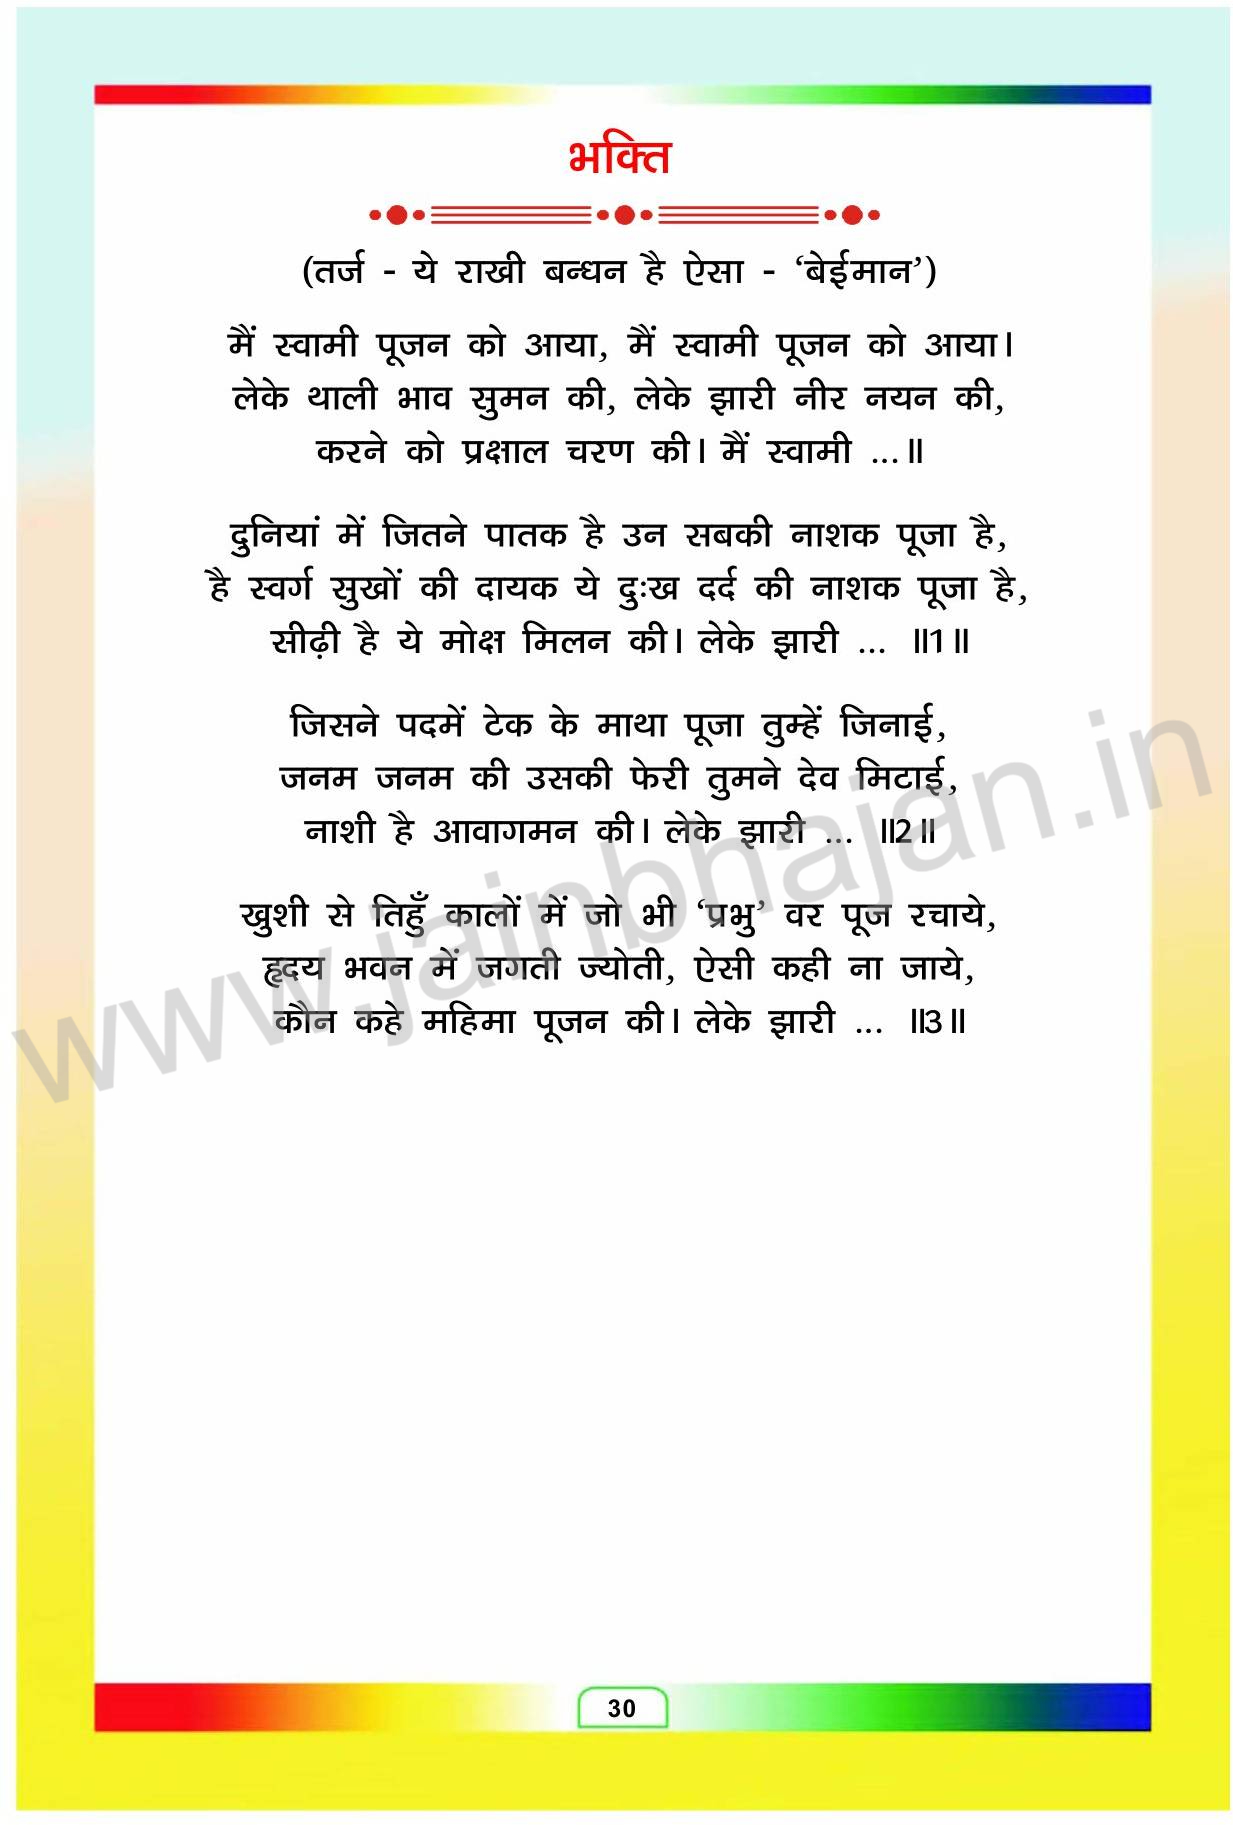 भक्ति
(तर्ज - ये राखी बन्धन है ऐसा - ‘बेईमान’)
मैं स्वामी पूजन को आया, मैं स्वामी पूजन को आया।
लेके थाली भाव सुमन की, लेके झारी नीर नयन की,
करने को प्रक्षाल चरण की। मैं स्वामी ...॥
दुनियां में जितने पातक है उन सबकी नाशक पूजा है,
है स्वर्ग सुखों की दायक ये दुःख दर्द की नाशक पूजा है,
सीढ़ी है ये मोक्ष मिलन की। लेके झारी ... ॥1॥
जिसने पदमें टेक के माथा पूजा तुम्हें जिनाई,
जनम जनम की उसकी फेरी तुमने देव मिटाई,
नाशी है आवागमन की। लेके झारी ... ॥2॥
खुशी से तिहुँ कालों में जो भी ‘प्रभु’ वर पूज रचाये,
हृदय भवन में जगती ज्योती, ऐसी कही ना जाये,
कौन कहे महिमा पूजन की। लेके झारी ... ॥3॥
www.jainbhajan.in
30